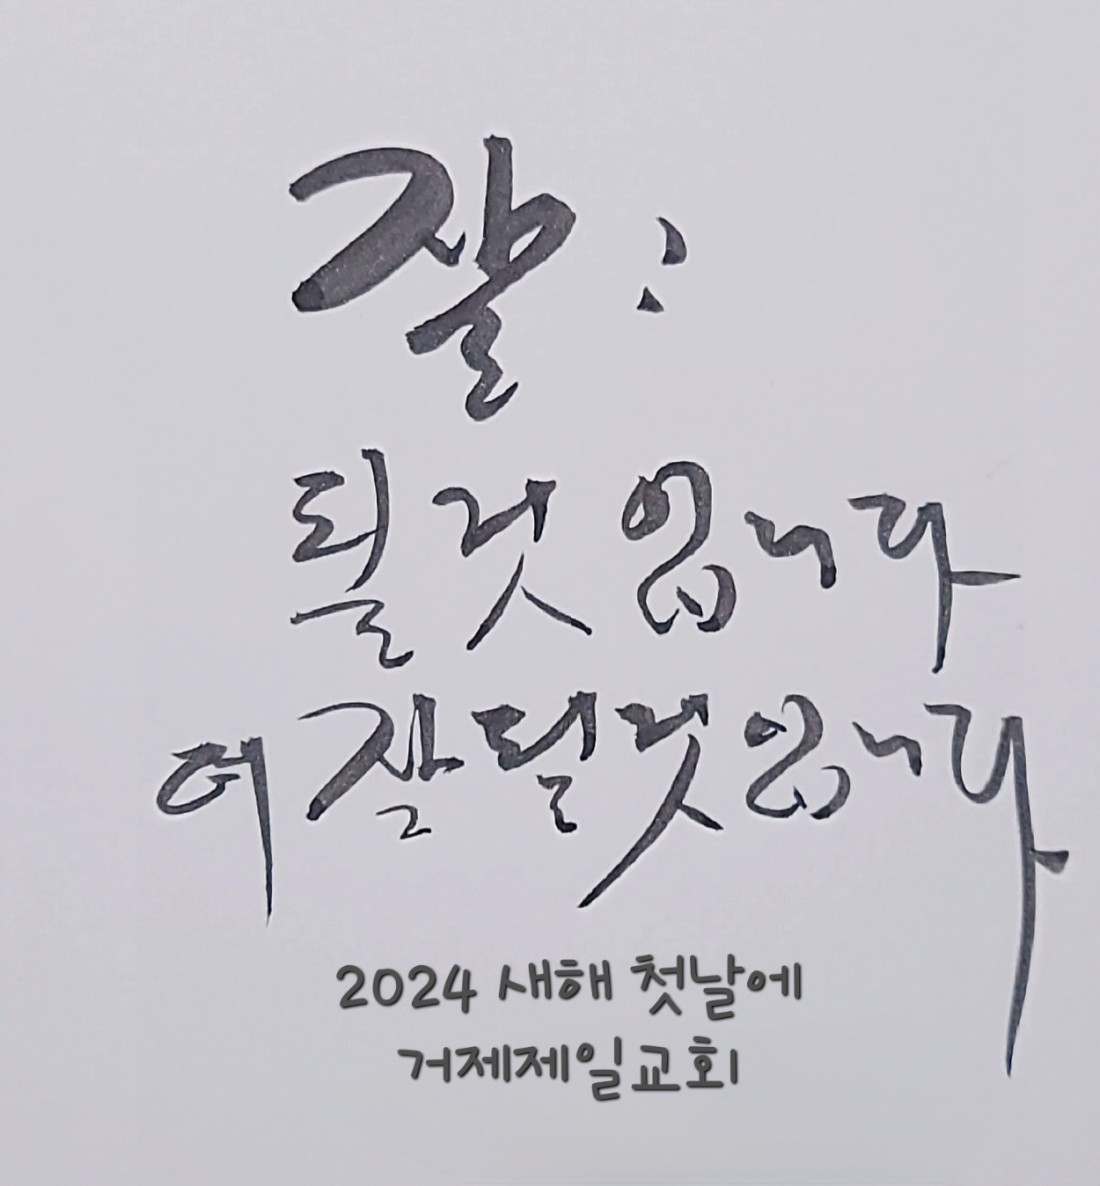 잘:
될것입니다
더잘될것입니다
2024 새해 첫날에
거제제일교회